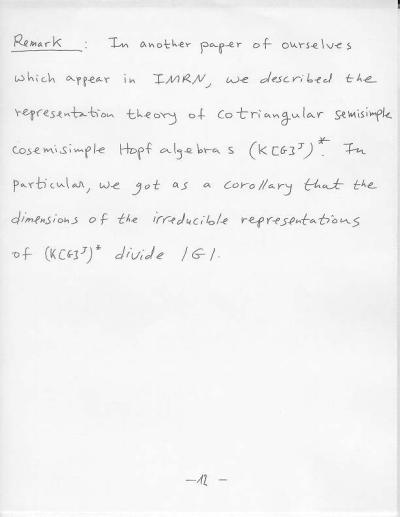 Remark : In another paper of ourselves
which appear in IMRN, we described the
representation theory of cotriangular semisimple
cosemisimple Hopf algebras (K[G]^J)^*. In
particular, we got as a corollary that the
dimensions of the irreducible representations
of (K[G]^J)^* divide |G|.
-12-